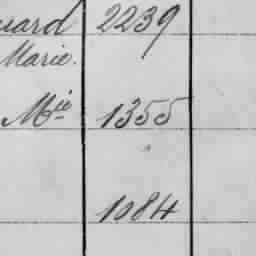 uard 2239
Marie.
Mie 1355
1084